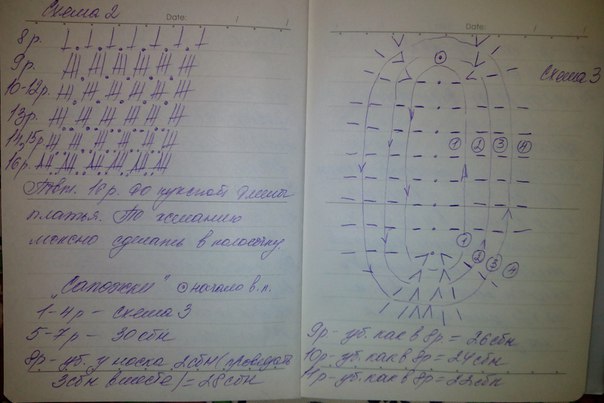 Схема 2
Date:
8р.
9р.
10-12р.
13р.
14,15р.
16р.
Повт. 16р. до нужной длины
платья. По желанию
можно сделать в полосочку
"Сапожки" начало в.п.
1-4р - схема 3
5-7р - 30сбн
8р - уб. у носка 2сбн (провязать
3сбн вместе) = 28сбн
Date:
Схема 3
1 2 3 4
1
2 3 4
9р - уб. как в 8р = 26сбн
10р - уб. как в 8р = 24сбн
11р - уб. как в 8р = 22сбн